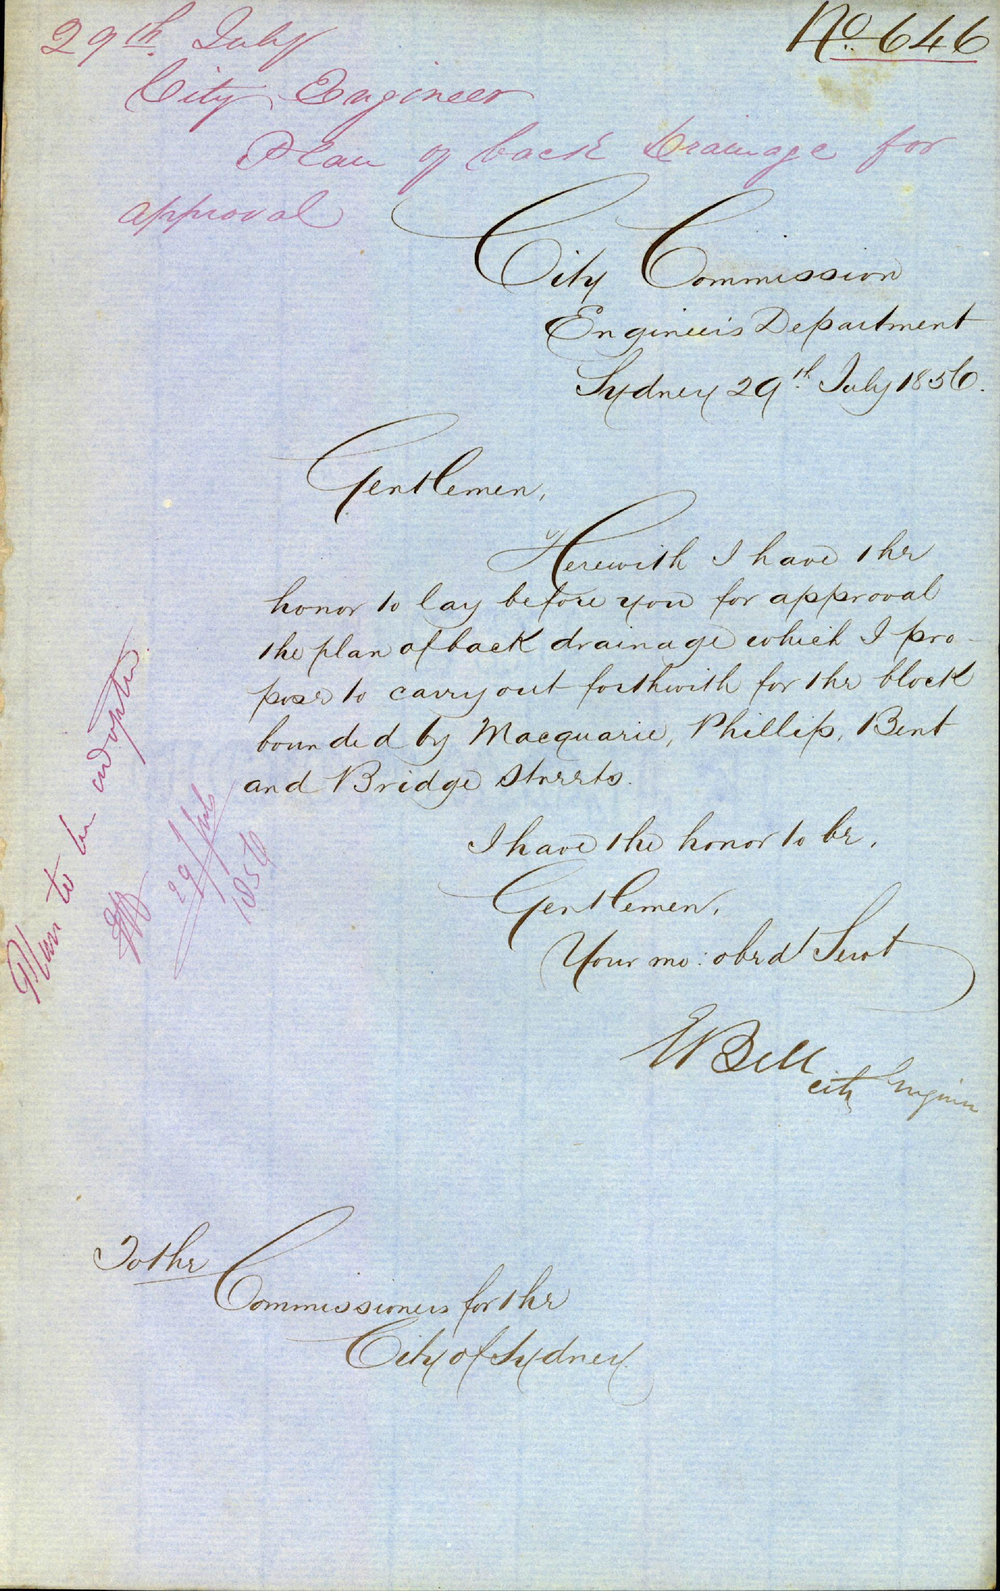 No. 646
29th July
City Engineer
Plan of back Drainage for
approval
City Commission
Engineers Department
Sydney 29th July 1856.
Gentlemen,
Herewith I have the
honor to lay before you for approval
the plan of back drainage which I pro-
pose to carry out forthwith for the block
bounded by Macquarie, Phillip, Bent
and Bridge Streets.
I have the honor to be,
Gentlemen,
Your mo: obedt Servt
EBell
City Engineer
Plan to be adopted
29/July
1856
To the
Commissioners for the
City of Sydney.